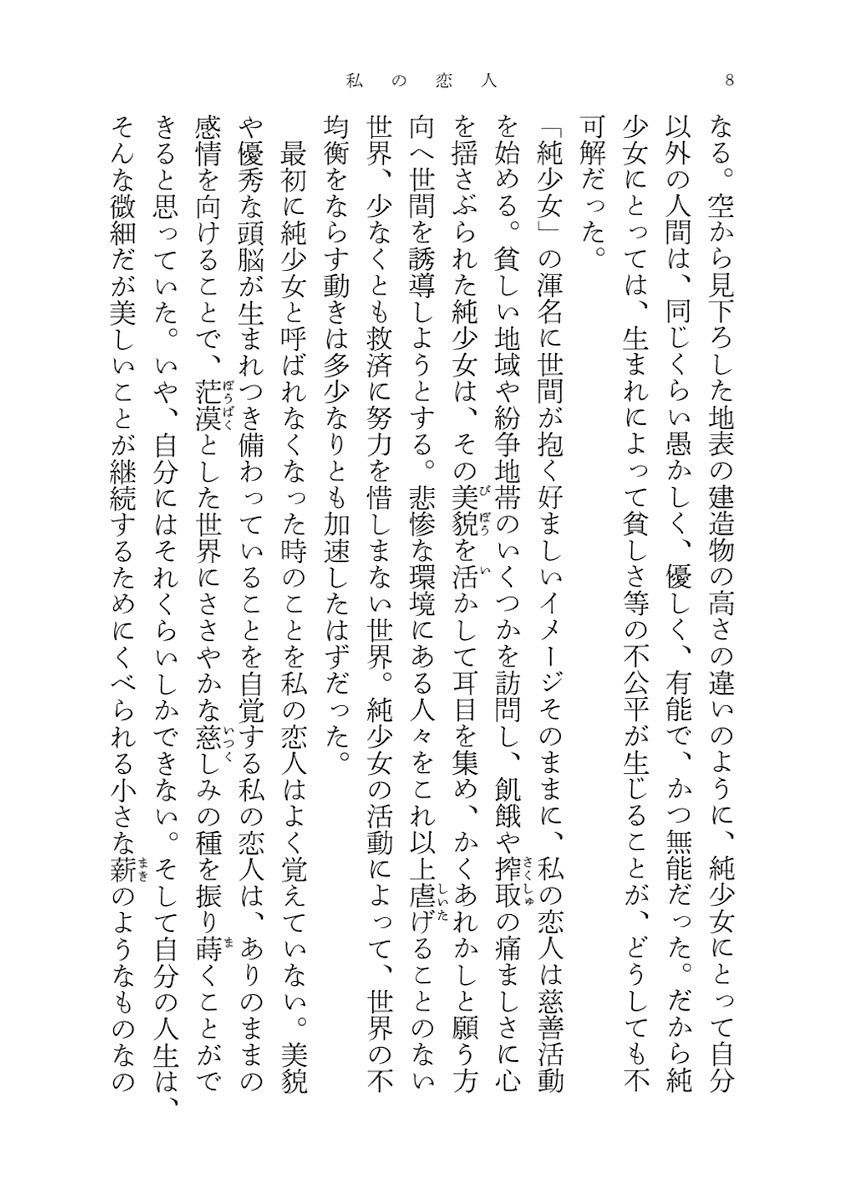 私の恋人
8
なる。空から見下ろした地表の建造物の高さの違いのように、純少女にとって自分
以外の人間は、同じくらい愚かしく、優しく、有能で、かつ無能だった。だから純
少女にとっては、生まれによって貧しさ等の不公平が生じることが、どうしても不
可解だった。
「純少女」の渾名に世間が抱く好ましいイメージそのままに、私の恋人は慈善活動
を始める。貧しい地域や紛争地帯のいくつかを訪問し、飢餓や搾取さくしゅの痛ましさに心
を揺さぶられた純少女は、その美貌びぼうを活いかして耳目を集め、かくあれかしと願う方
向へ世間を誘導しようとする。悲惨な環境にある人々をこれ以上虐しいたげることのない
世界、少なくとも救済に努力を惜しまない世界。純少女の活動によって、世界の不
均衡をならす動きは多少なりとも加速したはずだった。
最初に純少女と呼ばれなくなった時のことを私の恋人はよく覚えていない。美貌
や優秀な頭脳が生まれつき備わっていることを自覚する私の恋人は、ありのままの
感情を向けることで、茫漠ぼうばくとした世界にささやかな慈いつくしみの種を振り蒔まくことがで
きると思っていた。いや、自分にはそれくらいしかできない。そして自分の人生は、
そんな微細だが美しいことが継続するためにくべられる小さな薪まきのようなものなの